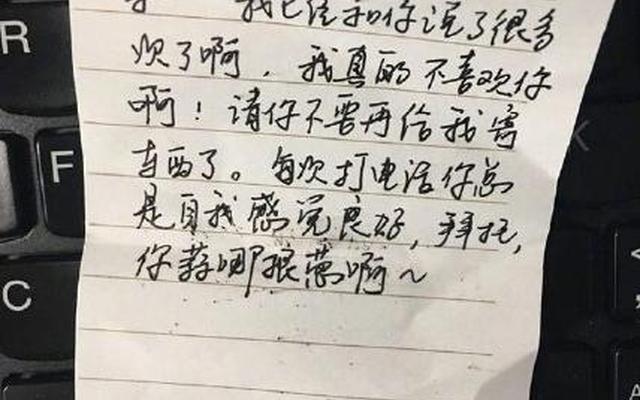 我已经和你说了很多
次了啊，我真的不喜欢你
啊！请你不要再给我寄
东西了。每次打电话你总
是自我感觉良好，拜托，
你蒜哪根葱啊～
R
F
C
K
A